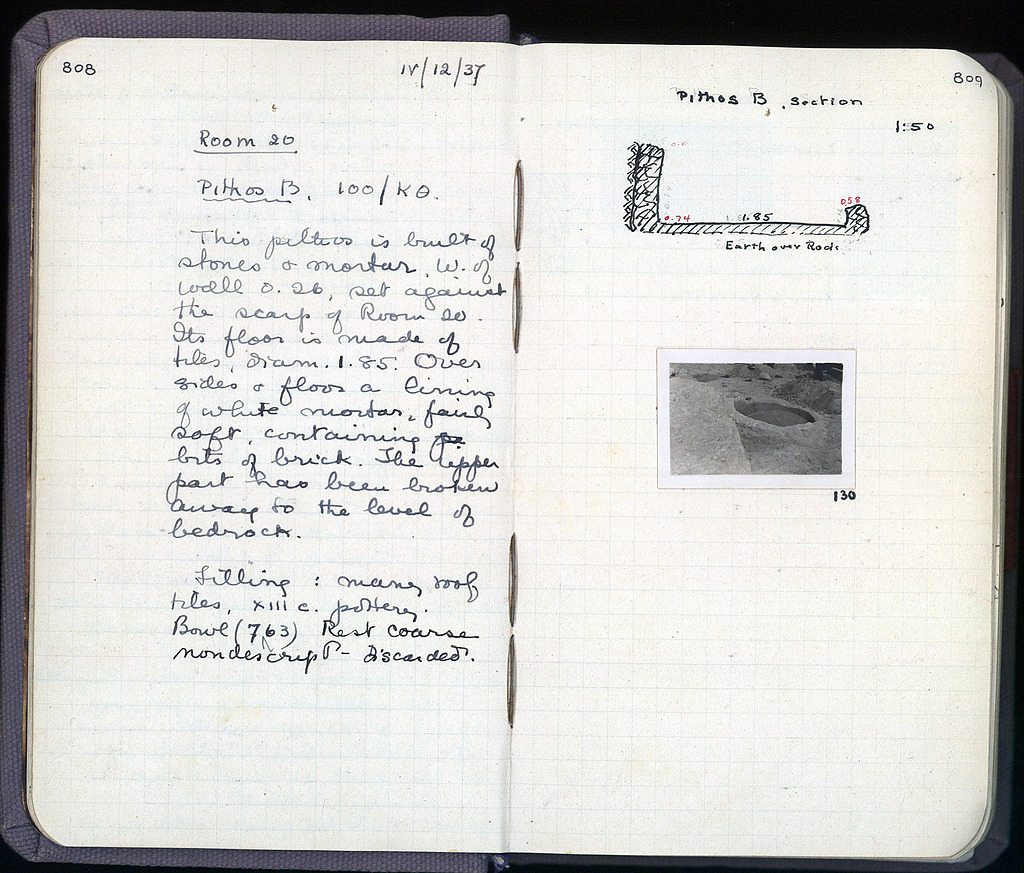 808
IV/12/37
Room 20
Pithos B. 100/KΘ.
This pithos is built of
stones & mortar, W. of
wall 0.26, set against
the scarp of Room 20.
Its floor is made of
tiles, diam. 1.85. Over
sides & floor a lining
of white mortar, fairly
soft, containing
bits of brick. The upper
part has been broken
away to the level of
bedrock.
Filling : many roof
tiles, XIII c. pottery.
Bowl (763) Rest coarse
nondescript - discarded.
809
Pithos B, section
1:50
0.0
0.74
1.85
0.58
Earth over Rock
130